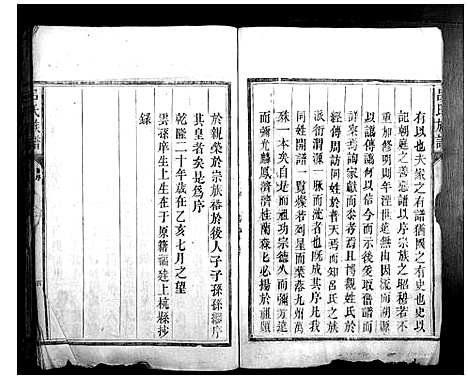 呂氏族譜
有以也夫家之有譜猶國之有史也史以
記朝廷之善惡譜以序宗族之昭穆若不
重加修明則年湮世遠無由因流而溯源
以訛傳訛何以信今而示後爰取舊譜而
考訂焉詢家獻而泰考焉且博觀姓氏於
經傳周訪同姓於普天焉而知呂氏之族
派衍渭源一脈而流者也既成其序凡我
同姓開譜一覽燦若列星而萊蔡九州萬
殊一本矣自是而祖功宗德久而彌芳遠
而彌光麟鳳濟濟桂蘭森森必揚於祖顯
於親榮於宗族裕於後人子子孫孫繆序
其皇者矣是為序
乾隆二十年歲在乙亥七月之望
雲孫庠生上生在于原籍福建上杭縣抄
錄
呂氏族譜